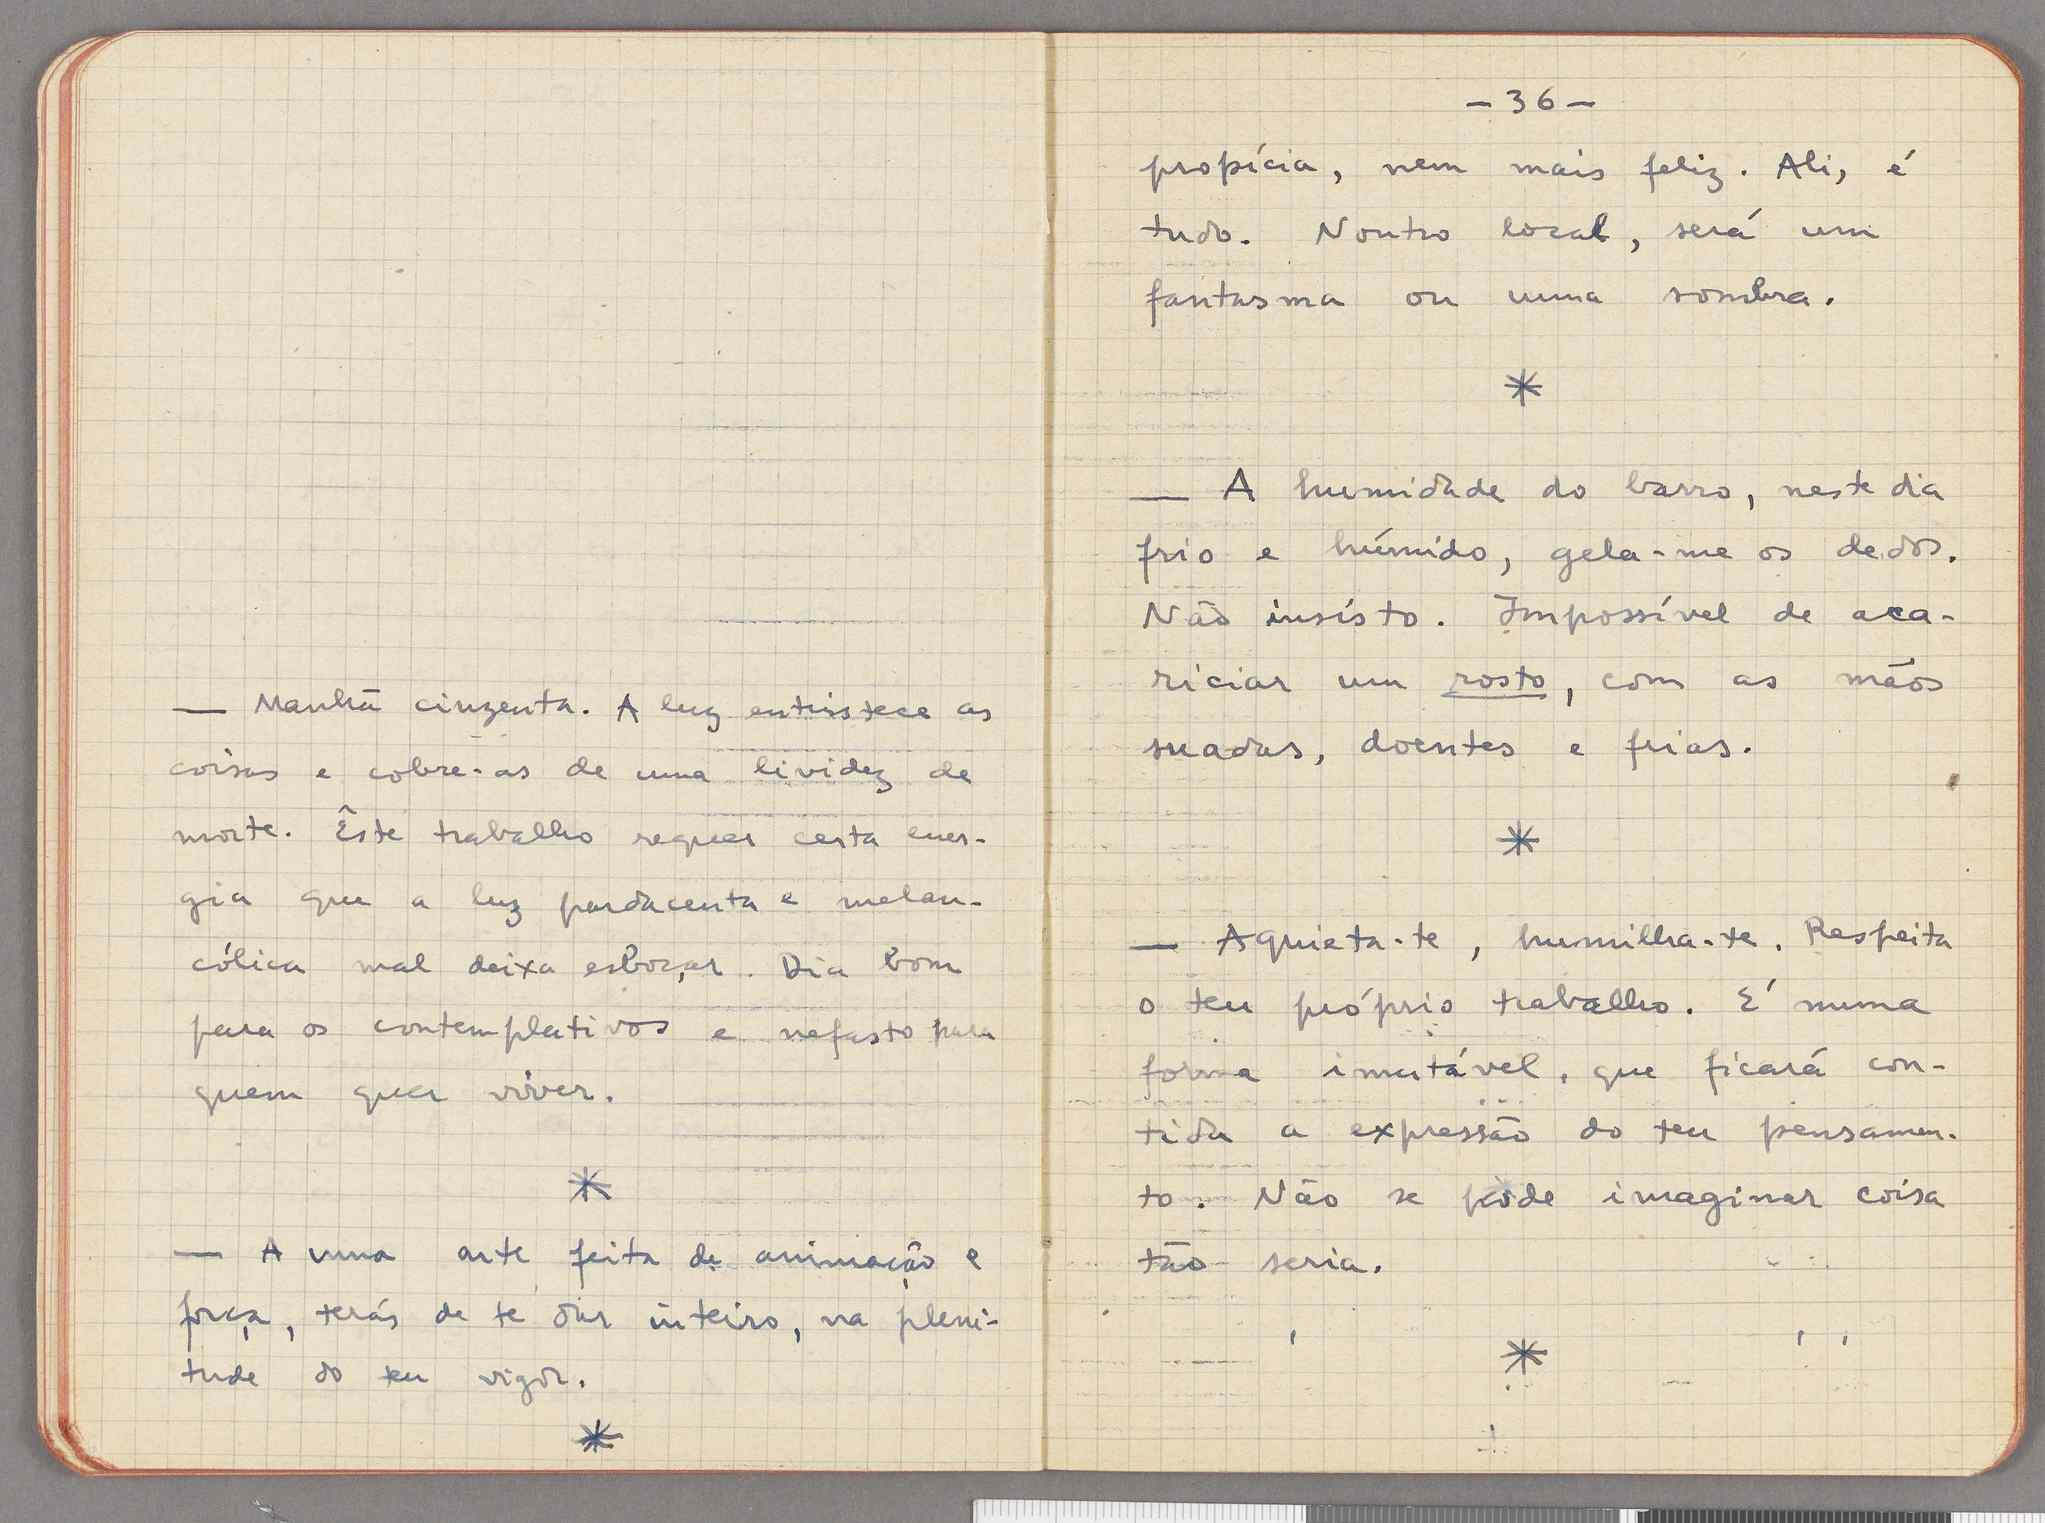 — Manhã cinzenta. A luz entristece as
coisas e cobre-as de uma lividez de
morte. Êste trabalho requer certa ener-
gia que a luz pardacenta e melan-
cólica mal deixa esboçar. Dia bom
para os contemplativos e nefasto para
quem quer viver.
*
— A uma arte feita de animação e
força, terás de te dar inteiro, na pleni-
tude do teu vigor.
*
— 36 —
propícia, nem mais feliz. Ali, é
tudo. Noutro local, será um
fantasma ou uma sombra.
*
— A humidade do barro, neste dia
frio e húmido, gela-me os dedos.
Não insisto. Impossível de aca-
riciar um rosto, com as mãos
suadas, doentes e frias.
*
— Aquieta-te, humilha-te. Respeita
o teu próprio trabalho. É numa
forma imutável, que ficará con-
tida a expressão do teu pensamen-
to. Não se pode imaginar coisa
tão seria.
*